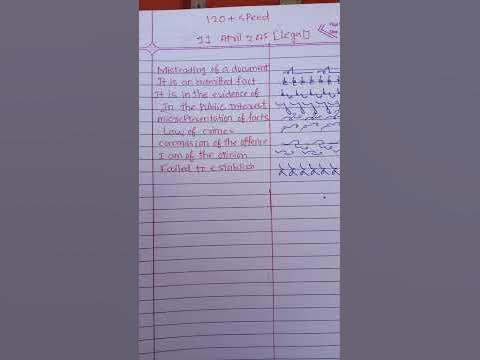 120+ speed
11 April 2025 [legal]
Mistrading of a document
It is an admitted fact
It is in the evidence of
In the Public Interest
misrepresentation of facts
Law of crimes
commission of the offence
I am of the opinion
Failed to establish